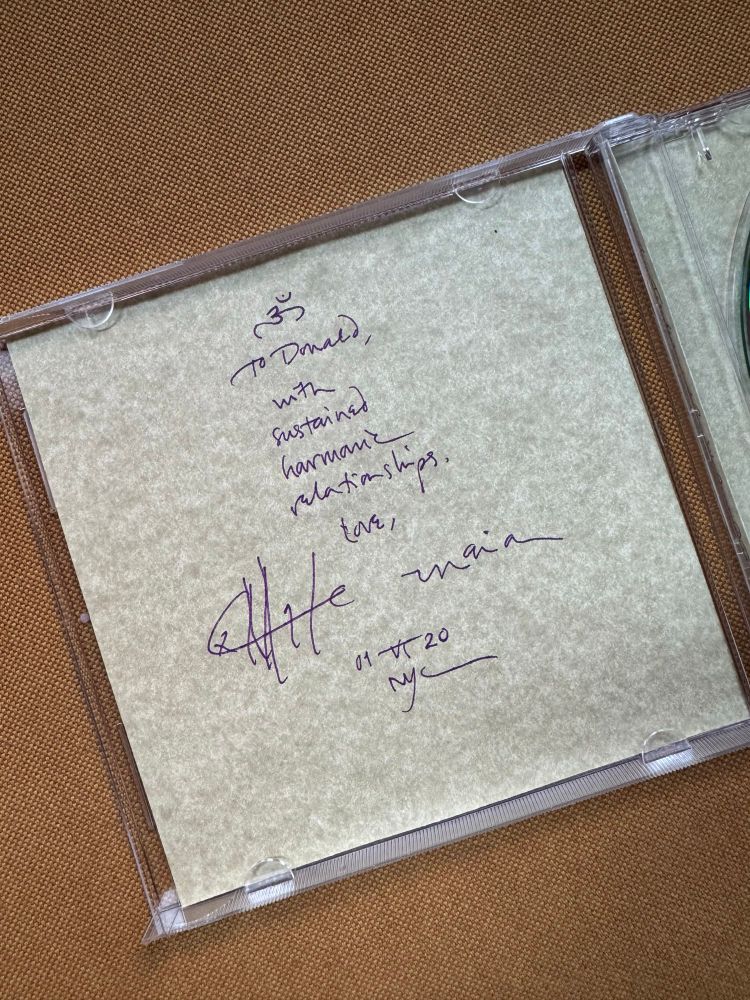 ॐ
To Donald,
with
sustained
harmonic
relationships.
Love,
maia
01 VI 20
NYC